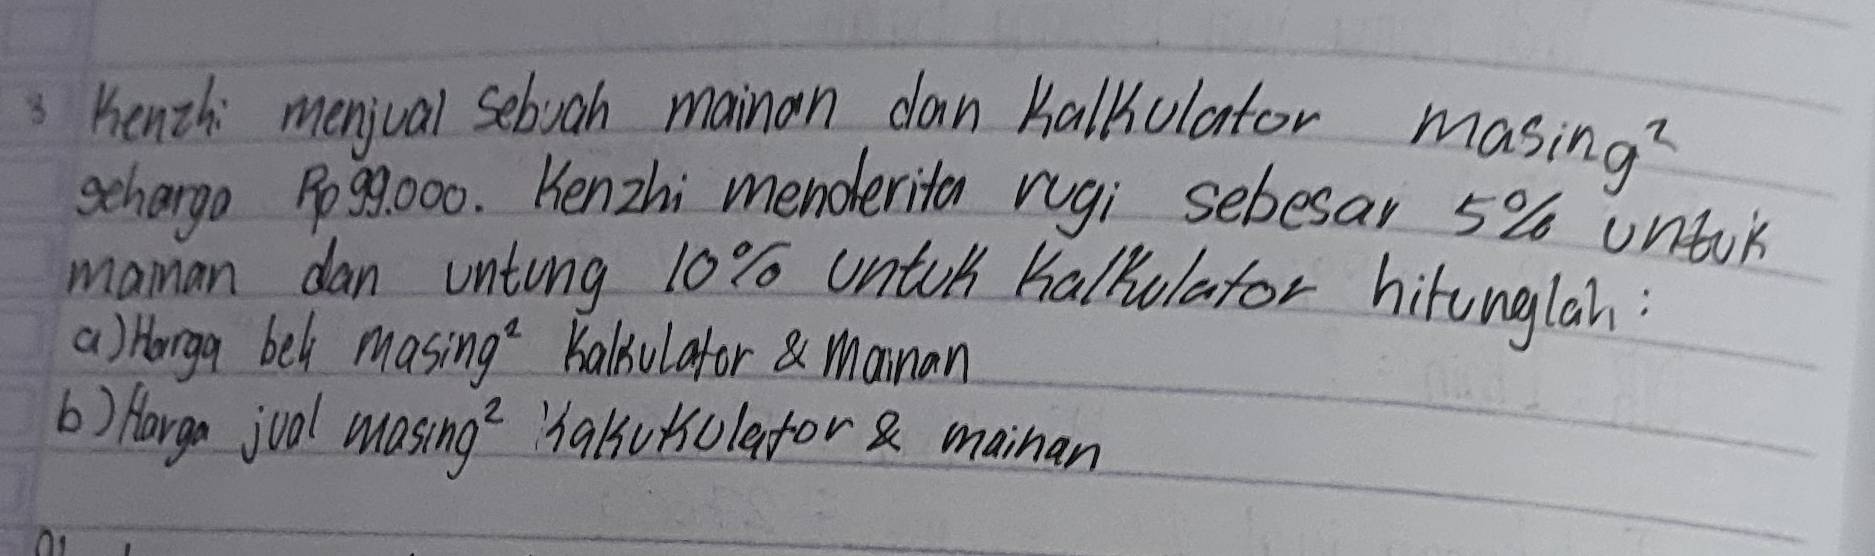 3 Kenzhi menjual sebuah mainan dan kalkulator masing²
seharga Rp 99.000. Kenzhi menderita rugi sebesar 5% untuk
mainan dan untung 10% untuk kalkulator hitunglah :
a) Harga beli masing² kalkulator & mainan
b) Harga jual masing² kakukulator & mainan